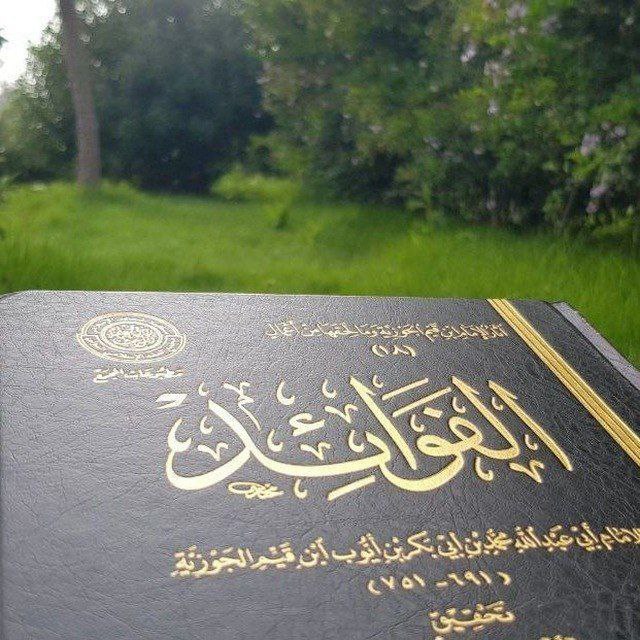 آثار الإمام ابن قيم الجوزية وما لحقها من أعمال
(١٨)
مطبوعات المجمع
الفَوَائِد
للإمام أبي عبد الله محمد بن أبي بكر بن أيوب ابن قيم الجوزية
(٦٩١ - ٧٥١)
تحقيق